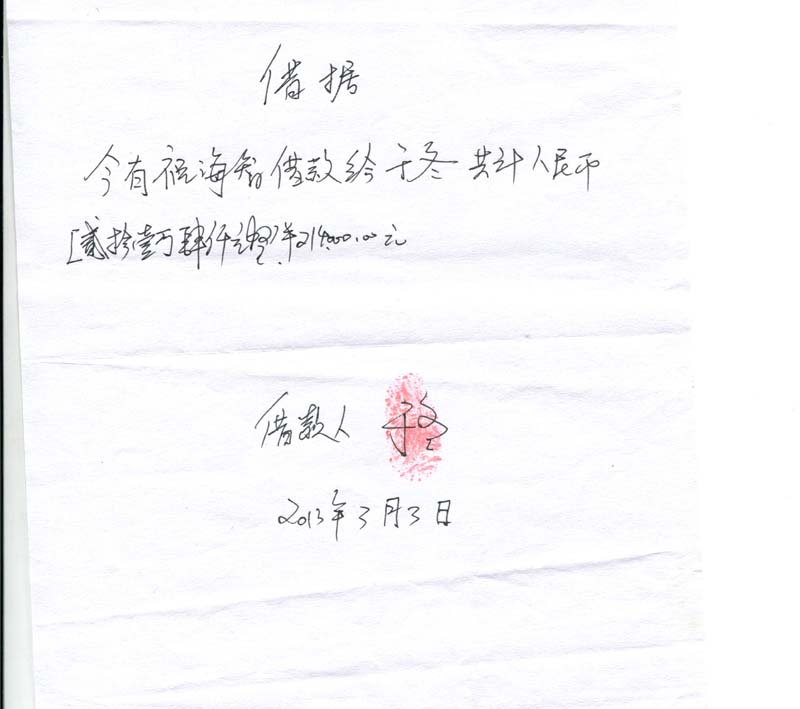 借据
今有祝海智借款给于冬共计人民币
[贰拾壹万肆仟元整¥214000.00元
借款人 于冬
2013年3月3日